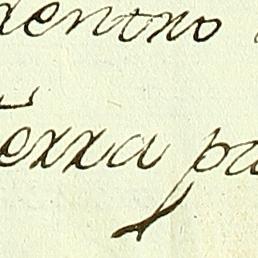 dentro
Terra pa